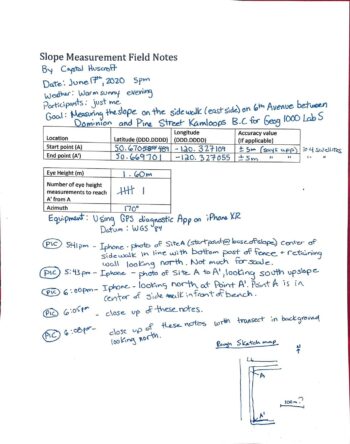 Slope Measurement Field Notes
By Crystal Huscroft
Date: June 17th, 2020 5pm
Weather: Warm sunny evening
Participants: just me.
Goal: Measuring the slope on the sidewalk (east side) on 6th Avenue between
Dominion and Pine Street Kamloops B.C for Geog 1000 Lab 5
Location Latitude (DDD.DDDD) Longitude (DDD.DDDD) Accuracy value (if applicable)
Start point (A) -120. 327109 ± 5m (says app) 4 satellites
End point (A') 50.669701 -120. 327055 ± 5m " " "
Eye Height (m) 1.60m
Number of eye height measurements to reach A' from A
Azimuth 170°
Equipment: Using GPS diagnostic App on iPhone XR
Datum: WGS '84
PIC 5:41pm - Iphone - photo of Site A (start point @ base of slope) center of
sidewalk in line with bottom post of fence + retaining
wall looking north. Not much for scale.
PIC 5:43pm - Iphone - photo of Site A to A', looking south upslope
PIC 6:00pm - Iphone - looking north at Point A'. Point A is in
center of sidewalk infront of bench.
PIC 6:05pm - close up of these notes.
PIC 6:08pm - close up of these notes with transect in background
looking north.
Rough Sketch map
N
A
A'
100m?